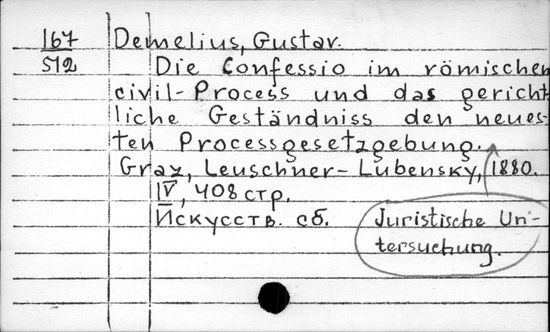 167 Demelius, Gustav.
512 Die Confessio im römischen
civil-Process und das gericht
liche Geständniss den neues-
ten Processgesetzgebung.
Graz, Leuschner-Lubensky, 1880.
IV, 408 стр.
Искусств. сб.
Juristische Un-
tersuchung.